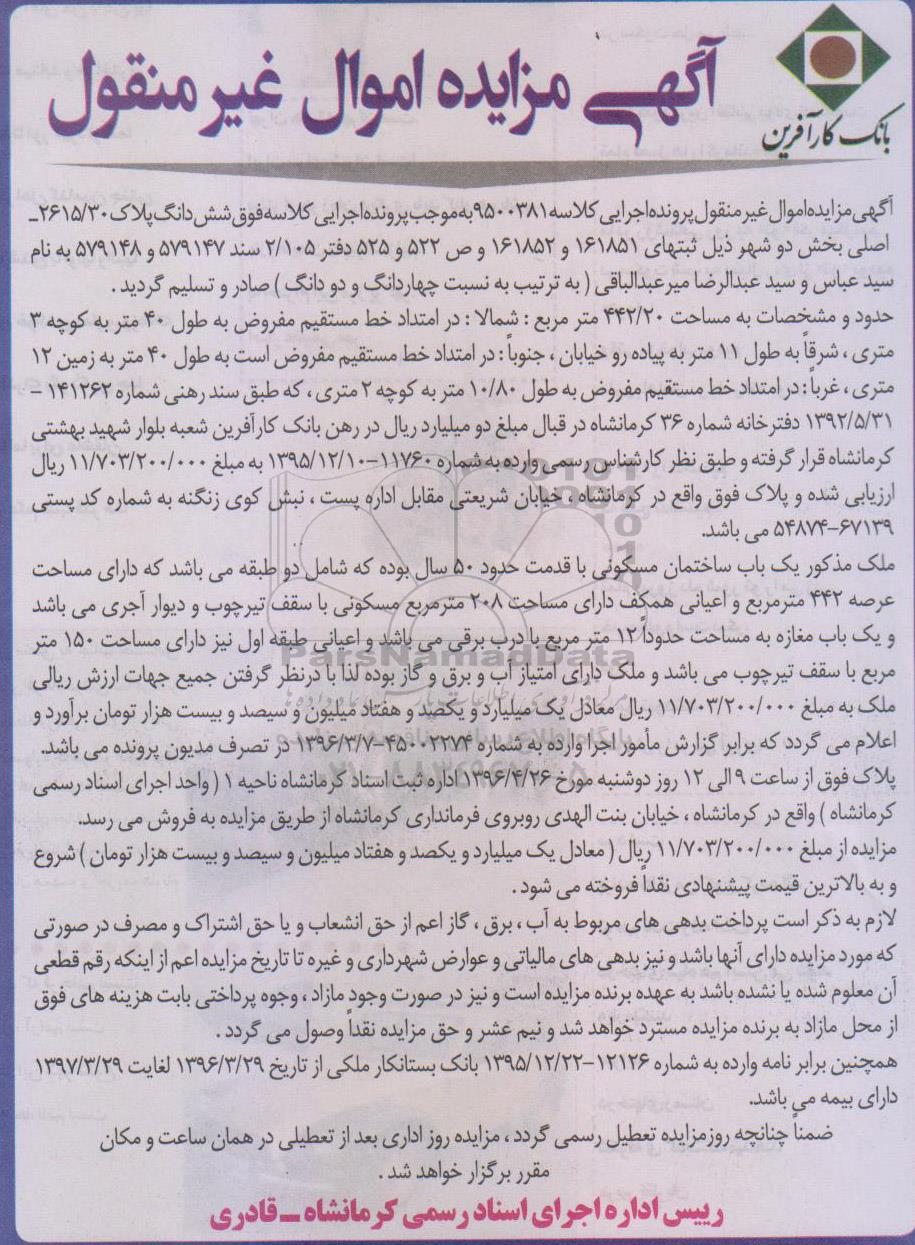 آگهی مزایده اموال غیر منقول
بانک کارآفرین
آگهی مزایده اموال غیر منقول پرونده اجرایی کلاسه ۹۵۰۰۳۸۱ به موجب پرونده اجرایی کلاسه فوق شش دانگ پلاک ۲۶۱۵/۳۰ـ
اصلی بخش دو شهر ذیل ثبتهای ۱۶۱۸۵۱ و ۱۶۱۸۵۲ و ص ۵۲۲ و ۵۲۵ دفتر ۲/۱۰۵ سند ۵۷۹۱۴۷ و ۵۷۹۱۴۸ به نام
سید عباس و سید عبدالرضا میرعبدالباقی ( به ترتیب به نسبت چهاردانگ و دو دانگ ) صادر و تسلیم گردید .
حدود و مشخصات به مساحت ۴۴۲/۲۰ متر مربع : شمالا : در امتداد خط مستقیم مفروض به طول ۴۰ متر به کوچه ۳
متری ، شرقاً به طول ۱۱ متر به پیاده رو خیابان ، جنوباً : در امتداد خط مستقیم مفروض است به طول ۴۰ متر به زمین ۱۲
متری ، غرباً : در امتداد خط مستقیم مفروض به طول ۱۰/۸۰ متر به کوچه ۲ متری ، که طبق سند رهنی شماره ۱۴۱۲۶۲ –
۱۳۹۲/۵/۳۱ دفترخانه شماره ۳۶ کرمانشاه در قبال مبلغ دو میلیارد ریال در رهن بانک کارآفرین شعبه بلوار شهید بهشتی
کرمانشاه قرار گرفته و طبق نظر کارشناس رسمی وارده به شماره ۱۱۷۶۰–۱۳۹۵/۱۲/۱۰ به مبلغ ۱۱/۷۰۳/۲۰۰/۰۰۰ ریال
ارزیابی شده و پلاک فوق واقع در کرمانشاه ، خیابان شریعتی مقابل اداره پست ، نبش کوی زنگنه به شماره کد پستی
۶۷۱۳۹–۵۴۸۷۴ می باشد.
ملک مذکور یک باب ساختمان مسکونی با قدمت حدود ۵۰ سال بوده که شامل دو طبقه می باشد که دارای مساحت
عرصه ۴۴۲ مترمربع و اعیانی همکف دارای مساحت ۲۰۸ مترمربع مسکونی با سقف تیرچوب و دیوار آجری می باشد
و یک باب مغازه به مساحت حدوداً ۱۲ متر مربع با درب برقی می باشد و اعیانی طبقه اول نیز دارای مساحت ۱۵۰ متر
مربع با سقف تیرچوب می باشد و ملک دارای امتیاز آب و برق و گاز بوده لذا با درنظر گرفتن جمیع جهات ارزش ریالی
ملک به مبلغ ۱۱/۷۰۳/۲۰۰/۰۰۰ ریال معادل یک میلیارد و یکصد و هفتاد میلیون و سیصد و بیست هزار تومان برآورد و
اعلام می گردد که برابر گزارش مأمور اجرا وارده به شماره ۴۵۰۰۲۲۷۴–۱۳۹۶/۳/۷ در تصرف مدیون پرونده می باشد.
پلاک فوق از ساعت ۹ الی ۱۲ روز دوشنبه مورخ ۱۳۹۶/۴/۲۶ اداره ثبت اسناد کرمانشاه ناحیه ۱ ( واحد اجرای اسناد رسمی
کرمانشاه ) واقع در کرمانشاه ، خیابان بنت الهدی روبروی فرمانداری کرمانشاه از طریق مزایده به فروش می رسد.
مزایده از مبلغ ۱۱/۷۰۳/۲۰۰/۰۰۰ ریال ( معادل یک میلیارد و یکصد و هفتاد میلیون و سیصد و بیست هزار تومان ) شروع
و به بالاترین قیمت پیشنهادی نقداً فروخته می شود .
لازم به ذکر است پرداخت بدهی های مربوط به آب ، برق ، گاز اعم از حق انشعاب و یا حق اشتراک و مصرف در صورتی
که مورد مزایده دارای آنها باشد و نیز بدهی های مالیاتی و عوارض شهرداری و غیره تا تاریخ مزایده اعم از اینکه رقم قطعی
آن معلوم شده یا نشده باشد به عهده برنده مزایده است و نیز در صورت وجود مازاد ، وجوه پرداختی بابت هزینه های فوق
از محل مازاد به برنده مزایده مسترد خواهد شد و نیم عشر و حق مزایده نقداً وصول می گردد .
همچنین برابر نامه وارده به شماره ۱۲۱۲۶–۱۳۹۵/۱۲/۲۲ بانک بستانکار ملکی از تاریخ ۱۳۹۶/۳/۲۹ لغایت ۱۳۹۷/۳/۲۹
دارای بیمه می باشد.
ضمناً چنانچه روزمزایده تعطیل رسمی گردد ، مزایده روز اداری بعد از تعطیلی در همان ساعت و مکان
مقرر برگزار خواهد شد .
رییس اداره اجرای اسناد رسمی کرمانشاه ـ قادری
ParsNamadData